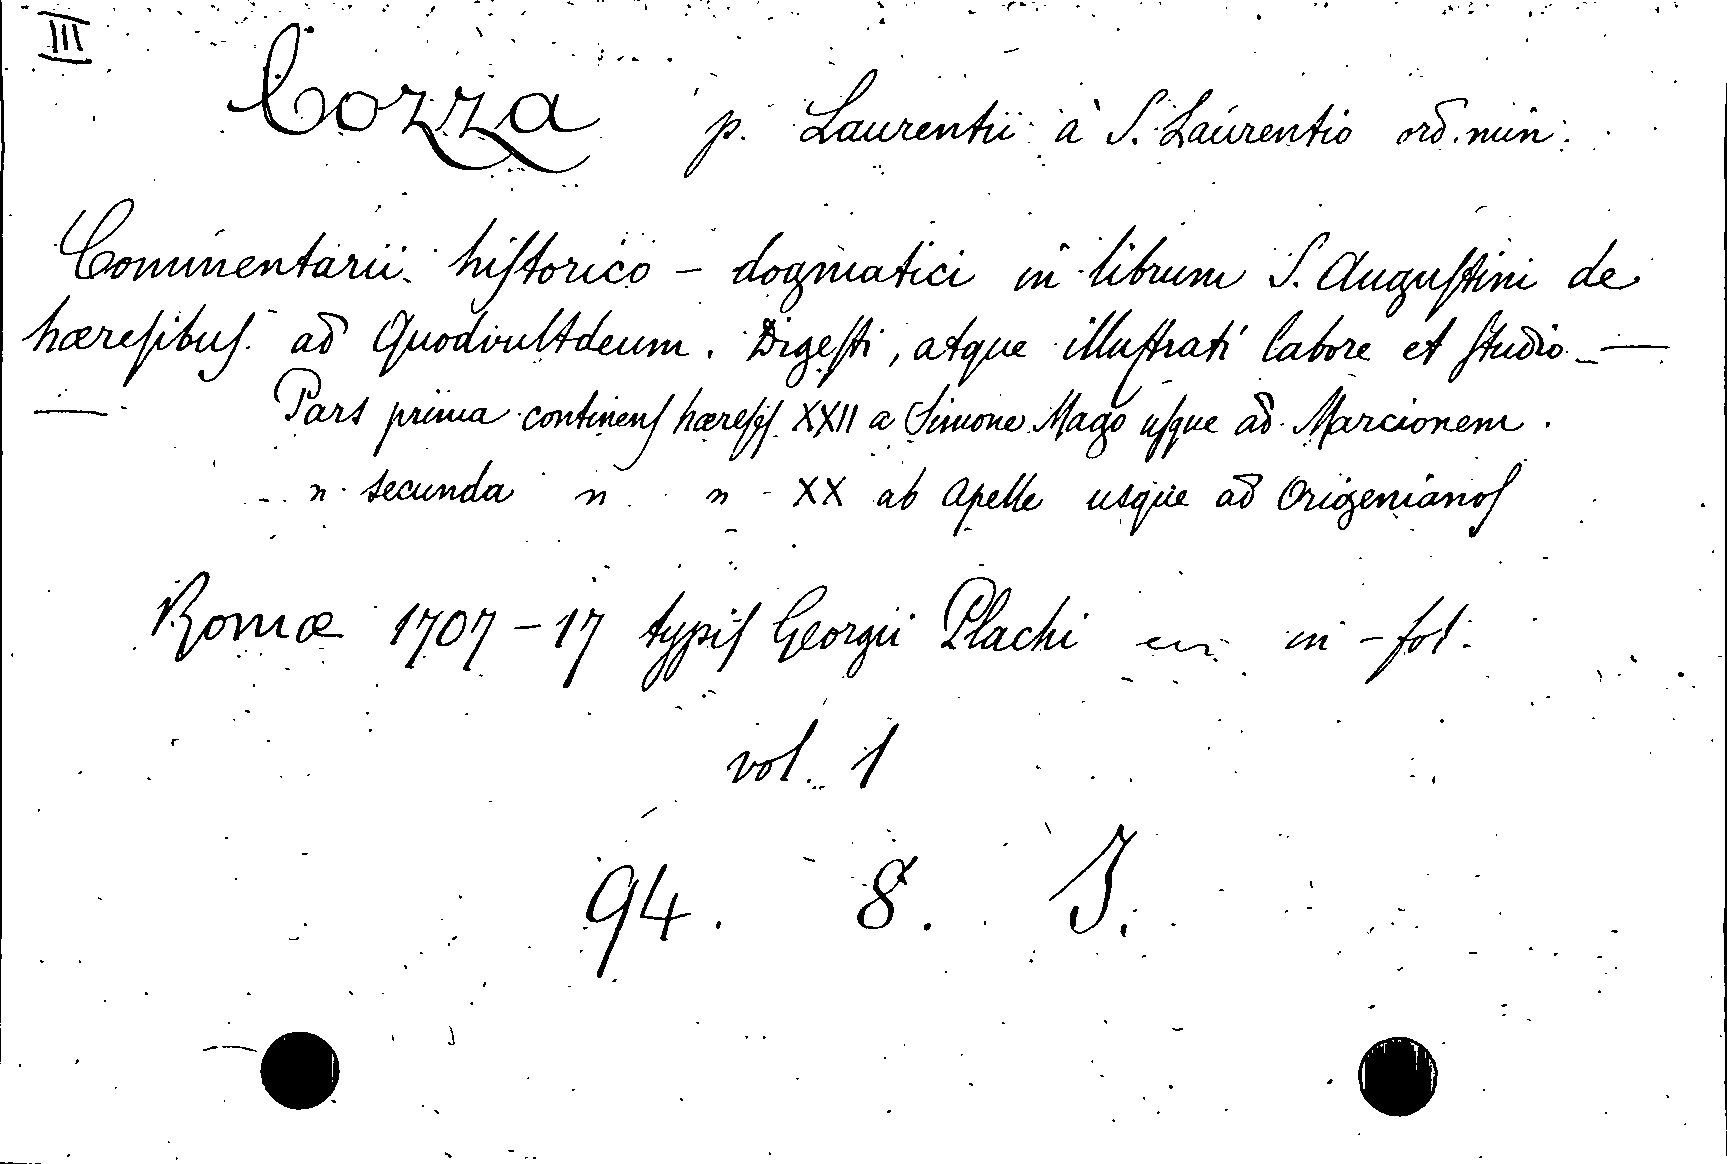 III
Cozza p. Laurentii à S. Laurentio ord. min.
Commentarii historico - dogmatici in librum S. Augustini de
hæresibus ad Quodvultdeum. Digesti, atque illustrati labore et studio —
— Pars prima continens hæreses XXII a Simone Mago usque ad Marcionem.
" secunda " " XX ab Apelle usque ad Origenianos
Romæ 1707-17 typis Georgii Plachi in-fol.
vol. 1
94. 8. J.